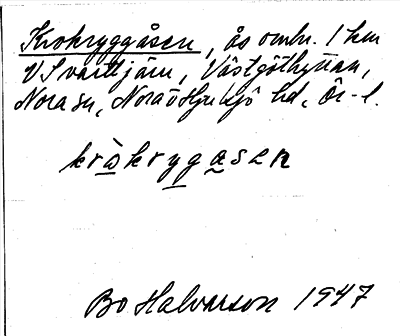 Krokryggåsen, ås omkr. 1 km
V Svarttjärn, Västgöthyttan,
Nora sn, Nora o Hjulsjö hd, Ör. l.
kròkrygåsen
Bo Halvarson 1947